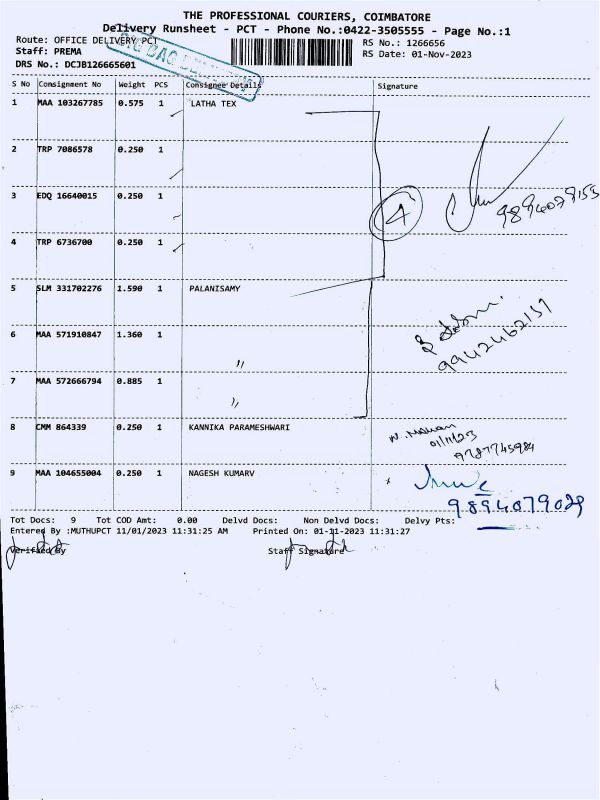 THE PROFESSIONAL COURIERS, COIMBATORE
Delivery Runsheet - PCT - Phone No.:0422-3505555 - Page No.:1
Route: OFFICE DELIVERY PCT
RS No.: 1266656
Staff: PREMA
RS Date: 01-Nov-2023
DRS No.: DCJB126665601
S No Consignment No Weight PCS Consignee Details Signature
1 MAA 103267785 0.575 1 LATHA TEX
2 TRP 7086578 0.250 1
3 EDQ 16640015 0.250 1
4
4 TRP 6736700 0.250 1
5 SLM 331702276 1.590 1 PALANISAMY
9942462159
6 MAA 571910847 1.360 1
"
7 MAA 572666794 0.885 1
"
8 CMM 864339 0.250 1 KANNIKA PARAMESHWARI
01/11/23
9787745984
9 MAA 104655004 0.250 1 NAGESH KUMARV
9894079029
Tot Docs: 9 Tot COD Amt: 0.00 Delvd Docs: Non Delvd Docs: Delvy Pts:
Entered By :MUTHUPCT 11/01/2023 11:31:25 AM Printed On: 01-11-2023 11:31:27
Verified By Staff Signature